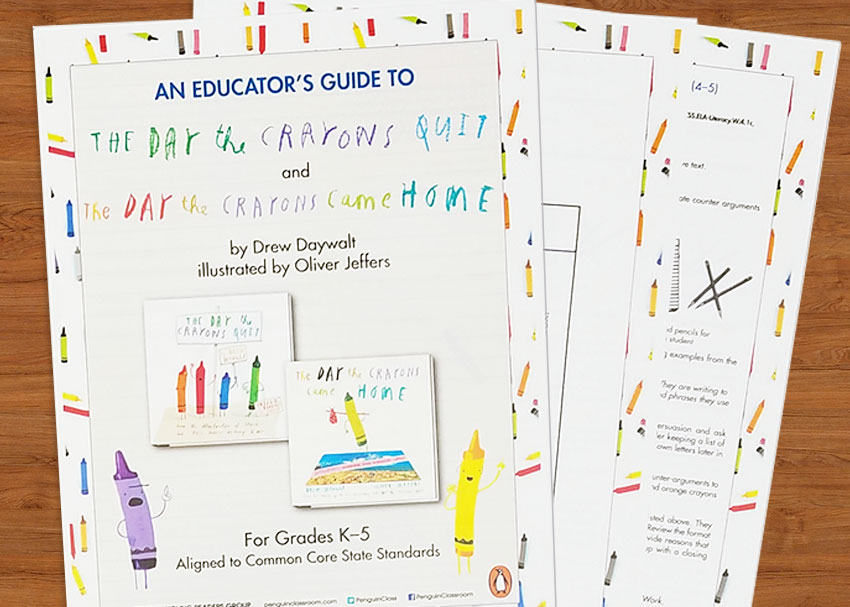 AN EDUCATOR'S GUIDE TO
THE DAY the CRAYONS QUIT
and
The DAY the CRAYONS Came HOME
by Drew Daywalt
illustrated by Oliver Jeffers
THE DAY the
CRAYONS QUIT
The DAY the CRAYONS
Came HOME
For Grades K–5
Aligned to Common Core State Standards
READERS GROUP penguinclassroom.com PenguinClass PenguinClassroom
(4–5)
SS.ELA-Literacy.W.4.1c,
re text.
ate counter arguments
d pencils for
student
examples from the
They are writing to
d phrases they use
ersuasion and ask
er keeping a list of
own letters later in
unter-arguments to
d orange crayons
sted above. They
Review the format
vide reasons that
up with a closing
Work,